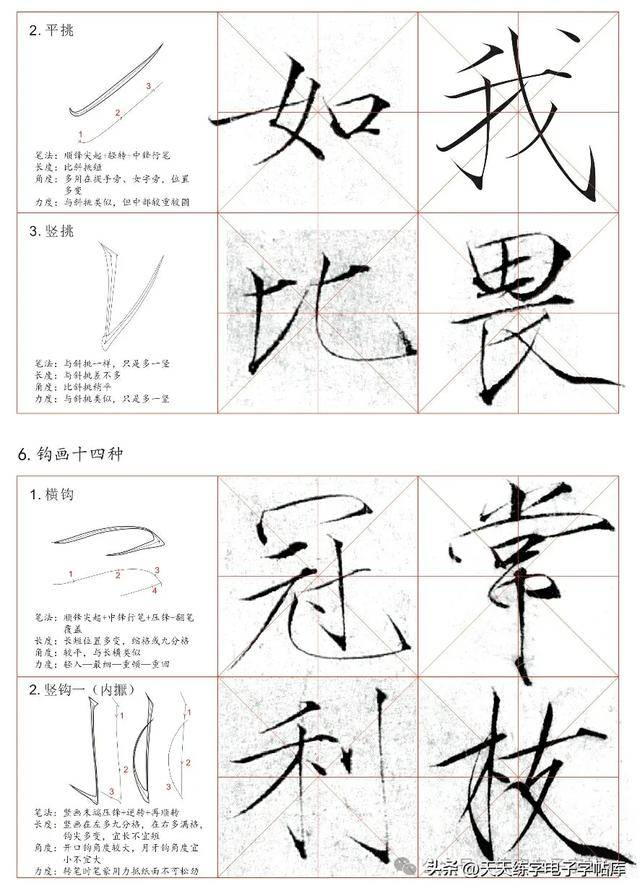 2. 平挑
1
2
3
如 我
笔法：顺锋尖起+轻转+中锋行笔
长度：比斜挑短
角度：多用在提手旁、女字旁，位置
多变
力度：与斜挑类似，但中部较重较圆
3. 竖挑
比 畏
笔法：与斜挑一样，只是多一竖
长度：与斜挑差不多
角度：比斜挑稍平
力度：与斜挑类似，只是多一竖
6. 钩画十四种
1. 横钩
1 2 3
4
冠 常
笔法：顺锋尖起+中锋行笔+压锋-翻笔
覆盖
长度：长短位置多变，缩格或九分格
角度：较平，与长横类似
力度：轻入—最细—重顿—重回
2. 竖钩一（内擫）
1 1
2 2
3 3
利 枝
笔法：竖画末端压锋+逆转+再顺转
长度：竖画在左多九分格，在右多满格，
钩尖多变，宜长不宜短
角度：开口钩角度较大，月牙钩角度宜
小不宜大
力度：转笔时笔毫用力抵纸面不可松劲
头条@天天练字电子字帖库